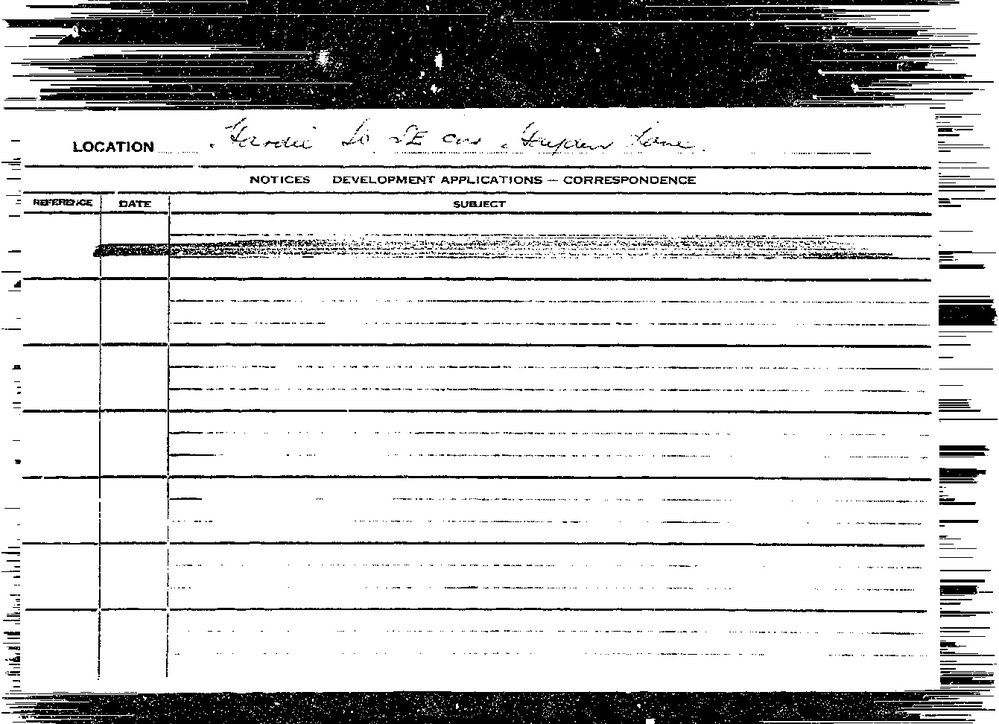 LOCATION Hardie St SE cnr Hayden Lane.
NOTICES DEVELOPMENT APPLICATIONS — CORRESPONDENCE
REFERENCE DATE SUBJECT